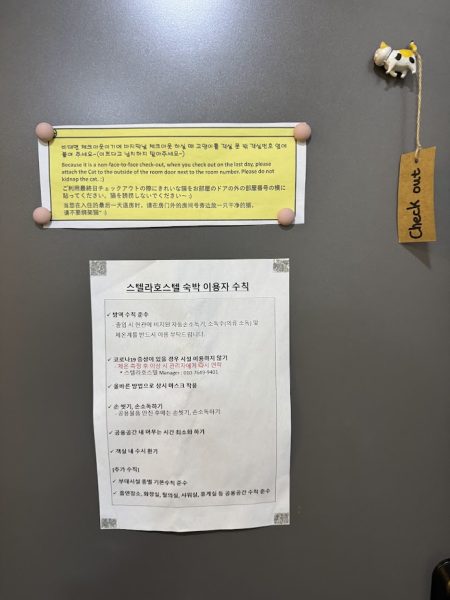 비대면 체크아웃이기에 마지막날 체크아웃 하실 때 고양이를 객실 문 밖 객실번호 옆에
붙여 주세요~(이쁘다고 납치하지 말아주세요~)
Because it is a non-face-to-face check-out, when you check out on the last day, please
attach the Cat to the outside of the room door next to the room number. Please do not
kidnap the cat. :)
ご利用最終日チェックアウトの際にきれいな猫をお部屋のドアの外の部屋番号の横に
貼ってください。猫を誘拐しないでください~ :)
当您在入住的最后一天退房时，请在房门外的房间号旁边放一只干净的猫。
请不要绑架猫~ :)
Check out
스텔라호스텔 숙박 이용자 수칙
✓ 방역 수칙 준수
- 출입 시 현관에 비치된 자동손소독기, 소독수(의류 소독) 및
체온계를 반드시 이용 부탁드립니다.
✓ 코로나19 증상이 있을 경우 시설 이용하지 않기
- 체온 측정 후 이상 시 관리자에게 즉시 연락
* 스텔라호스텔 Manager : 010-7649-9401
✓ 올바른 방법으로 상시 마스크 착용
✓ 손 씻기, 손소독하기
- 공용물품 만진 후에는 손씻기, 손소독하기
✓ 공용공간 내 머무는 시간 최소화 하기
✓ 객실 내 수시 환기
[추가 수칙]
✓ 부대시설 종별 기본수칙 준수
✓ 흡연장소, 화장실, 탈의실, 샤워실, 휴게실 등 공용공간 수칙 준수